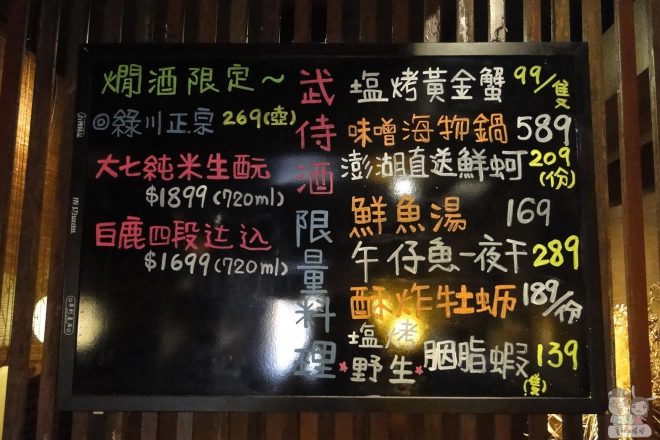 燜酒限定~
@綠川正宗 269(壺)
大七純米生酛
$1899(720ml)
白鹿四段辻込
$1699(720ml)
武侍酒 限量料理
塩烤黃金蟹 99/隻
味噌海物鍋 589
澎湖直送鮮蚵 209(份)
鮮魚湯 169
午仔魚一夜干 289
酥炸牡蛎 189/份
塩烤野生胭脂蝦 139(隻)